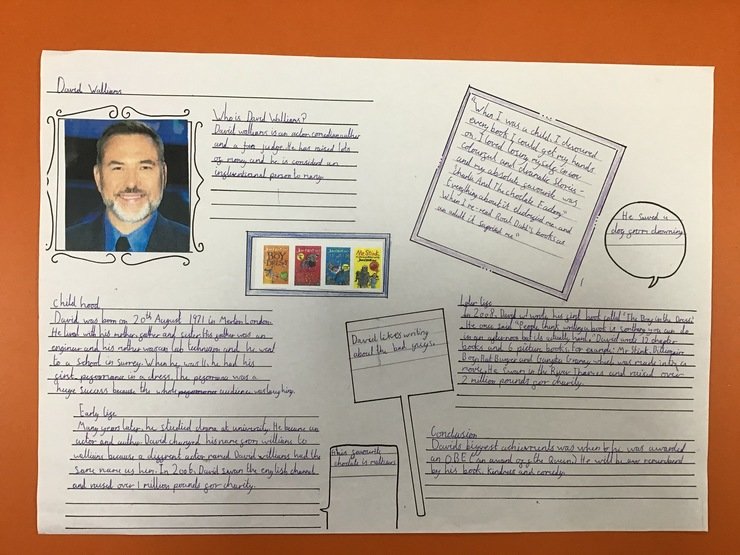 David Walliams
Who is David Walliams?
David walliams is an actor, comedian, author
and a fun judge. He has raised lots
of money and he is considerd an
insfluentional person to many.
"When I was a child, I devoured
every book I could get my hands
on. I loved losing myself in new
colourful and dramatic stories -
and my absolute favourite was
Charlie And The chocolate Factory."
"Everything about it electrified me and
When I re-read Roald Dahl's books as
an adult it inspired me"
He saved a
dog from drowning
BOY
DRESS
Mr Stink
Child hood
David was born on 20th August 1971 in Merton London.
He lived with his mother, father and sister. His father was an
engineer and his mother was an lab technision and he went
to a school in Surrey. When he was 11, he had his
first performance in a dress. The performance was a
huge success because the whole audience was laughing.
Early life
Many years later, he studied drama at university. He became an
actor and author. David changed his name from williams to
walliams because a different actor named David williams had the
same name as him. In 2006, David swam the english channel
and raised over 1 million pounds for charity.
David likes writing
about the bad guys.
His favourite
chocolate is maltesers
Later life
In 2008, David wrote his first book called "The Boy in the Dress"
He once said "People think writing a book is somthing you can do
in an afternoon but its actually hard." David wrote 12 chapter
books and 6 picture books. For example: Mr Stink, Billionaire
Boy, Rat Burger and Gangsta Granny which was made into a
movie. He swam in the River Thames and raised over
2 million pounds for charity.
Conclusion
Davids biggest achievments was when he was awarded
an OBE (an award of the Queen.) He will be our remembured
by his book, kindness and comedy.